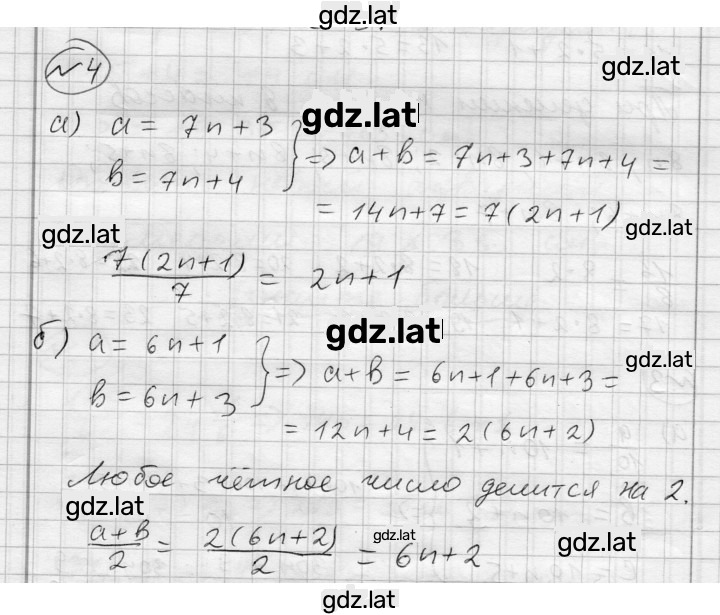 gdz.lat
№4
gdz.lat
а) a = 7n+3
gdz.lat
b = 7n+4
} => a+b = 7n+3+7n+4 =
= 14n+7 = 7(2n+1)
gdz.lat
gdz.lat
7(2n+1)/7 = 2n+1
б) a = 6n+1
gdz.lat
b = 6n+3
} => a+b = 6n+1+6n+3 =
gdz.lat
= 12n+4 = 2(6n+2)
Любое чётное число делится на 2.
gdz.lat
a+b/2 = 2(6n+2)/2 = 6n+2
gdz.lat
gdz.lat
gdz.lat